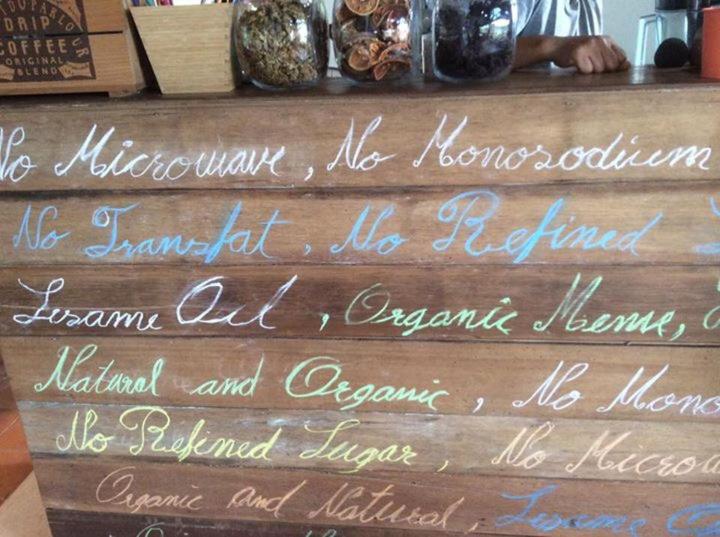 DRIP
COFFEE
ORIGINAL
BLEND
No Microwave, No Monosodiuem
No Transfat, No Refined
Sesame Oil, Organic Meme,
Natural and Organic, No Mono
No Refined Sugar, No Microw
Organic and Natural, Sesame